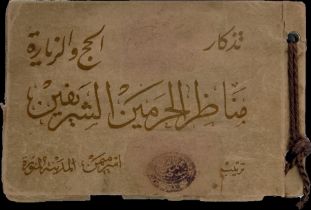 تذكار الحج والزيارة
مناظر الحرمين الشريفين
ترتيب
المدينة المنورة